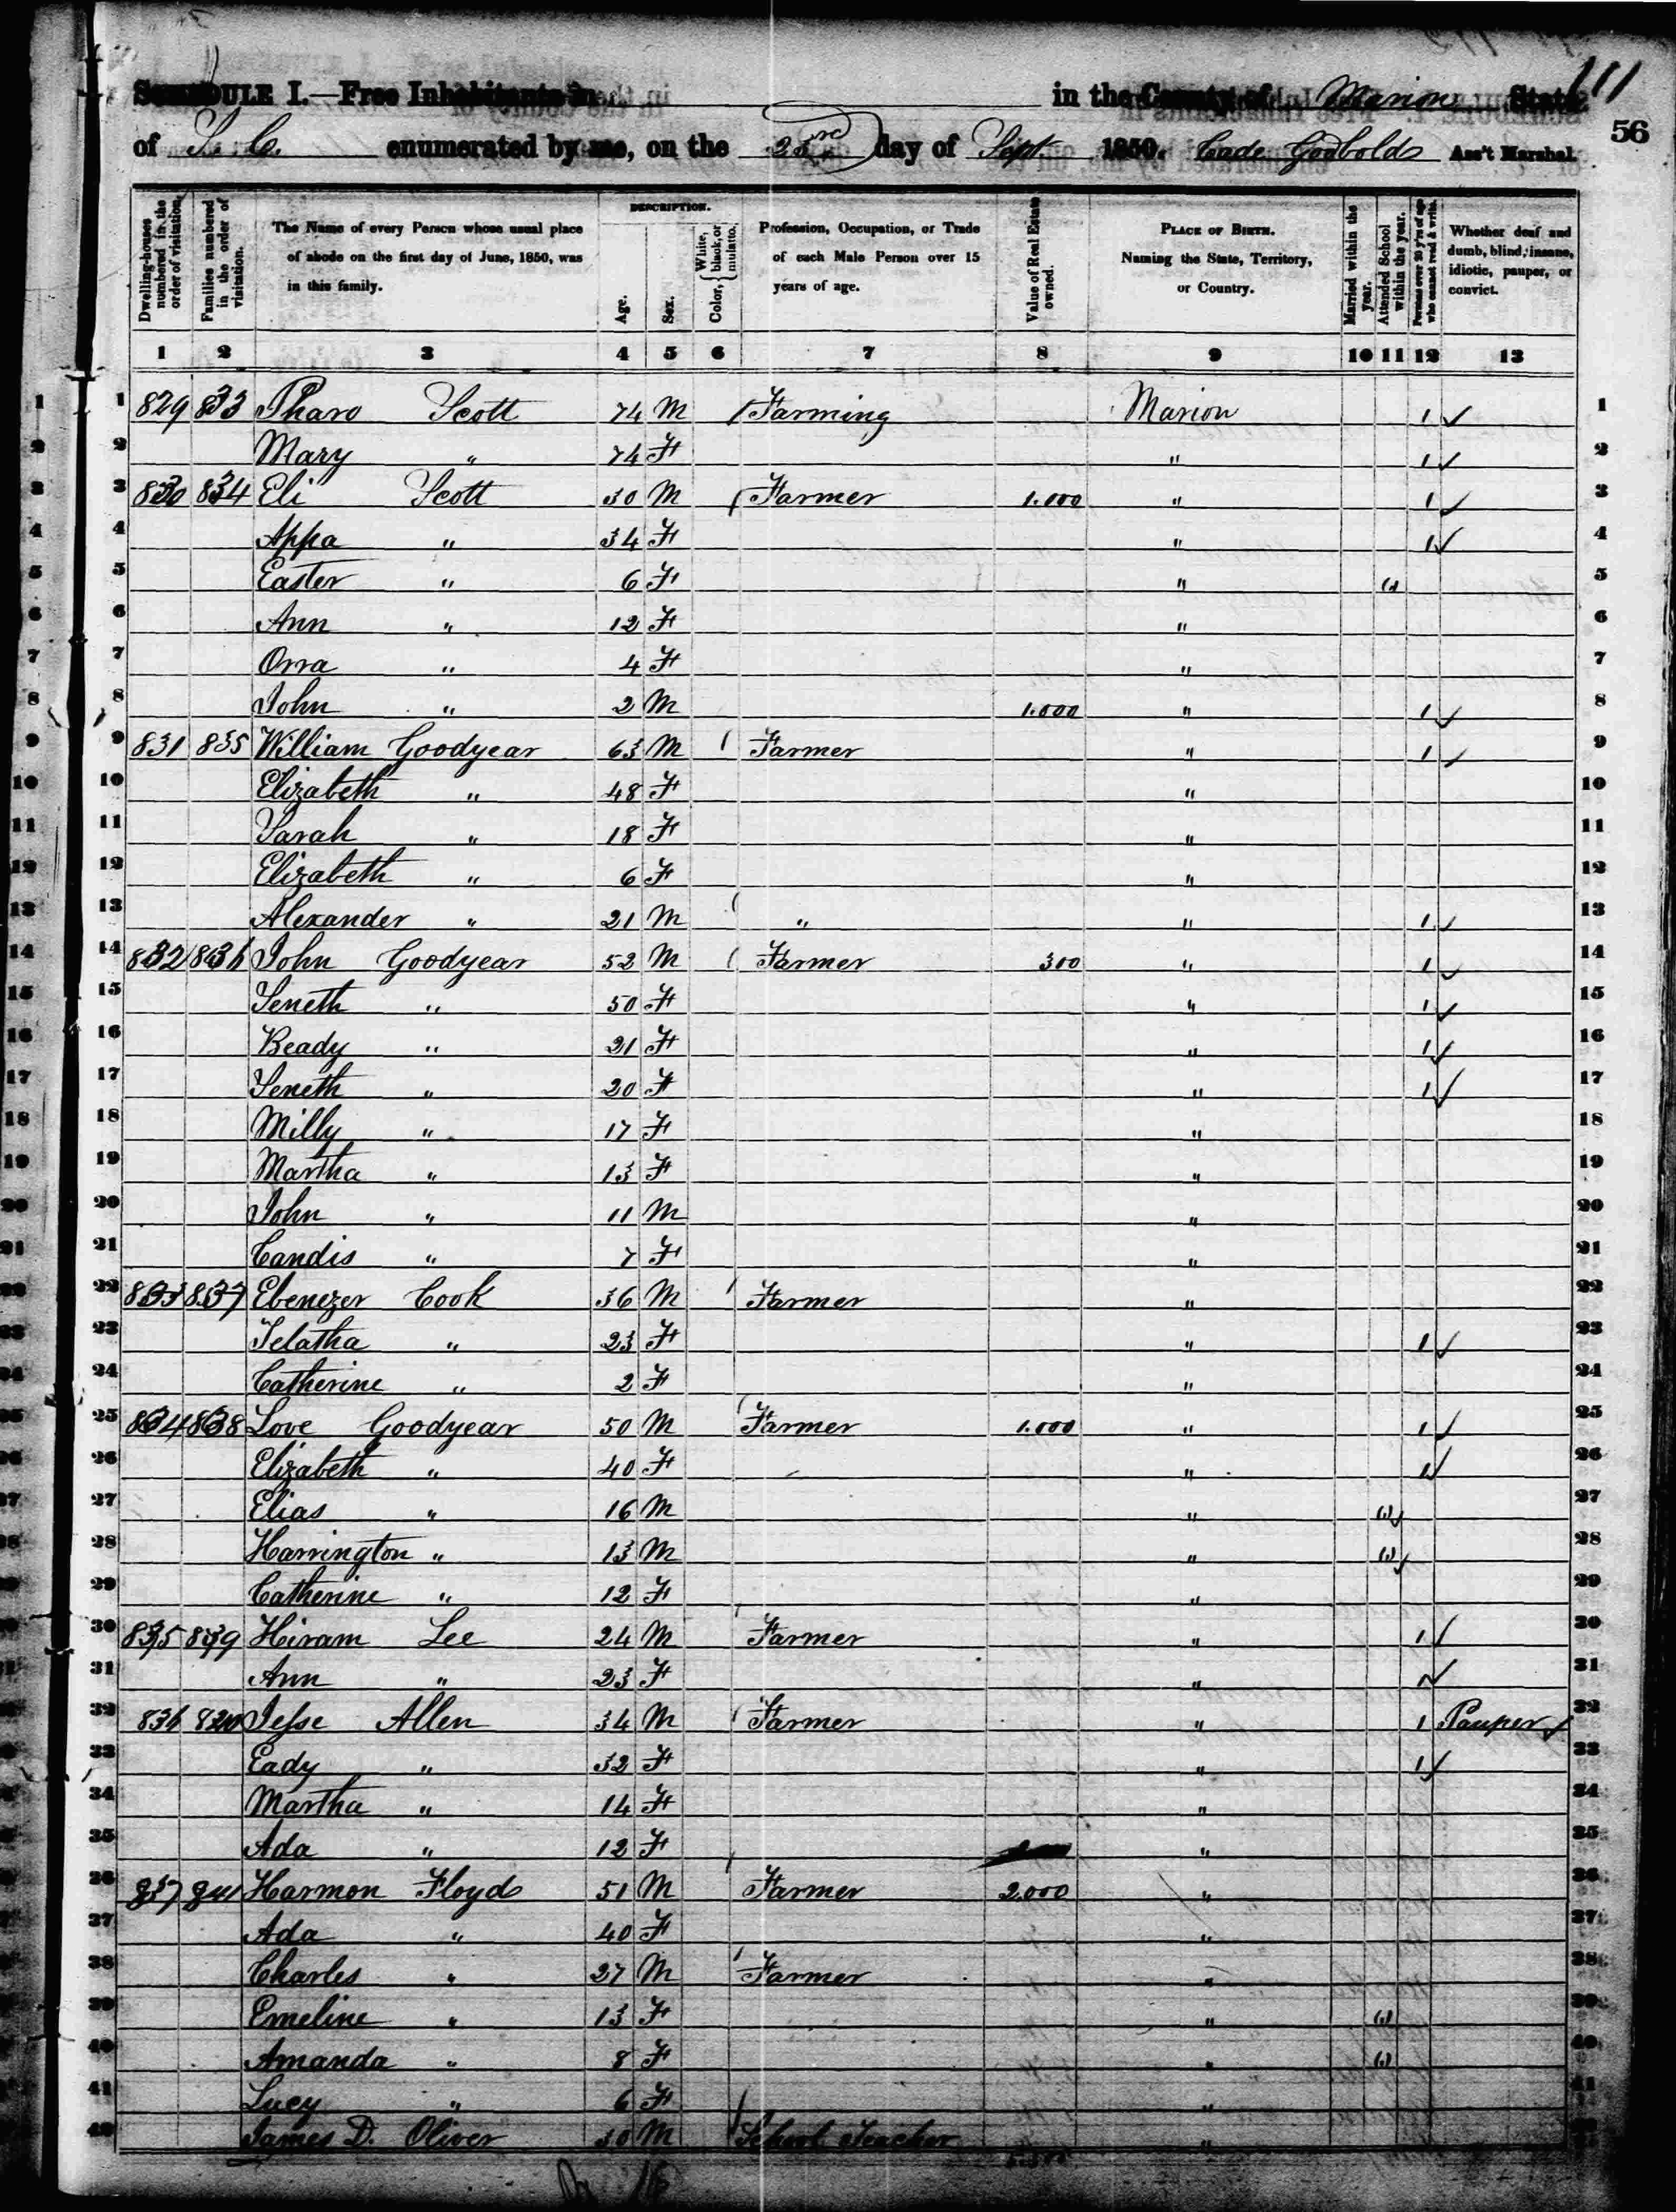 111
SCHEDULE I.—Free Inhabitants in in the County of Marion State
56
of S. C. enumerated by me, on the 23rd day of Sept. 1850. Cade Godbold Ass't Marshal.
Dwelling-houses numbered in the order of visitation.
Families numbered in the order of visitation.
The Name of every Person whose usual place of abode on the first day of June, 1850, was in this family.
DESCRIPTION.
Age.
Sex.
Color, { White, black, or mulatto.
Profession, Occupation, or Trade of each Male Person over 15 years of age.
Value of Real Estate owned.
PLACE OF BIRTH. Naming the State, Territory, or Country.
Married within the year.
Attended School within the year.
Persons over 20 y'rs of age who cannot read & write.
Whether deaf and dumb, blind, insane, idiotic, pauper, or convict.
1 2 3 4 5 6 7 8 9 10 11 12 13
1 829 833 Pharo Scott 74 M Farming Marion 1 ✓ 1
2 Mary " 74 F " 1 ✓ 2
3 830 834 Eli Scott 30 M Farmer 1.000 " 1 ✓ 3
4 Appa " 34 F " 1 ✓ 4
5 Easter " 6 F " 5
6 Ann " 12 F " 6
7 Orra " 4 F " 7
8 John " 2 M 1.000 " 1 ✓ 8
9 831 835 William Goodyear 63 M Farmer " 1 ✓ 9
10 Elizabeth " 48 F " 10
11 Sarah " 18 F " 11
12 Elizabeth " 6 F " 12
13 Alexander " 21 M " " 1 ✓ 13
14 832 836 John Goodyear 52 M Farmer 300 " 1 ✓ 14
15 Seneth " 50 F " 1 ✓ 15
16 Beady " 21 F " 1 ✓ 16
17 Seneth " 20 F " 1 ✓ 17
18 Milly " 17 F " 18
19 Martha " 13 F " 19
20 John " 11 M " 20
21 Candis " 7 F " 21
22 833 837 Ebenezer Cook 36 M Farmer " 22
23 Telatha " 23 F " 1 ✓ 23
24 Catherine " 2 F " 24
25 834 838 Love Goodyear 50 M Farmer 1.000 " 1 ✓ 25
26 Elizabeth " 40 F " 1 ✓ 26
27 Elias " 16 M " 27
28 Harrington " 13 M " 28
29 Catherine " 12 F " 29
30 835 839 Hiram Lee 24 M Farmer " 1 ✓ 30
31 Ann " 23 F " 1 ✓ 31
32 836 840 Jesse Allen 34 M Farmer " 1 Pauper ✓ 32
33 Eady " 32 F " 1 ✓ 33
34 Martha " 14 F " 34
35 Ada " 12 F " 35
36 837 841 Harmon Floyd 51 M Farmer 2.000 " 36
37 Ada " 40 F " 37
38 Charles " 27 M Farmer " 38
39 Emeline " 13 F " 39
40 Amanda " 8 F " 40
41 Lucy " 6 F " 41
42 James D. Oliver 30 M School Teacher "